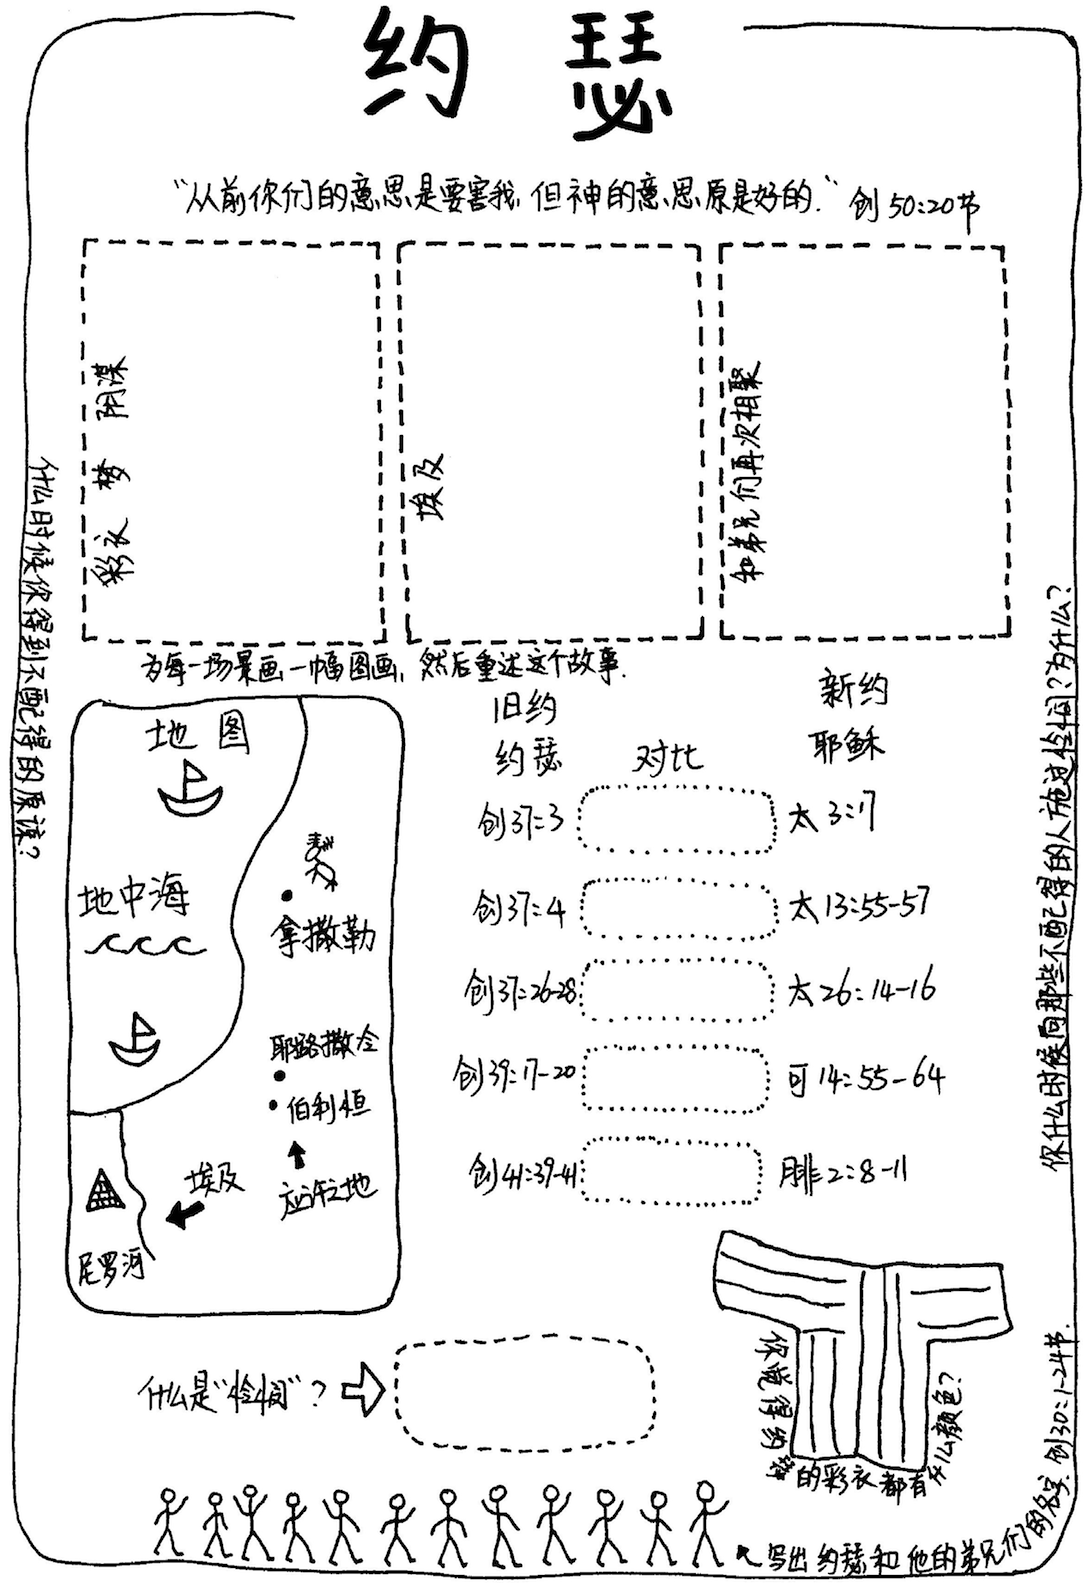 约 瑟
“从前你们的意思是要害我,但神的意思原是好的.” 创50:20节
彩衣 梦 阴谋
埃及
和弟兄们再次相聚
为每一场景画一幅图画,然后重述这个故事.
什么时候你得到不配得的原谅?
你什么时候向那些不配得的人施过怜悯?为什么?
地图
地中海
拿撒勒
耶路撒冷
伯利恒
应许之地
埃及
尼罗河
旧约 新约
约瑟 对比 耶稣
创37:3 太3:17
创37:4 太13:55-57
创37:26-28 太26:14-16
创39:17-20 可14:55-64
创41:39-41 腓2:8-11
什么是“怜悯”?
你觉得约瑟的彩衣都有什么颜色?
写出约瑟和他的弟兄们的名字.创30:1-24节.